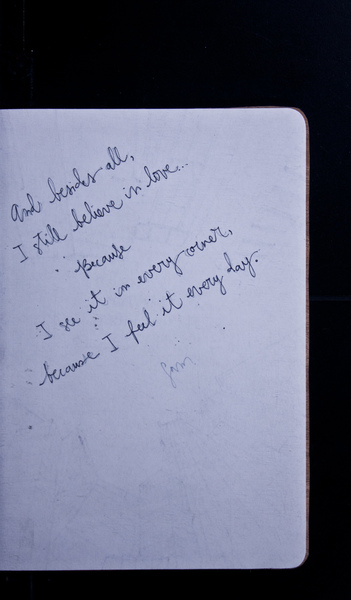 And besides all,
I still believe in love...
Because
I see it in every corner,
because I feel it every day.